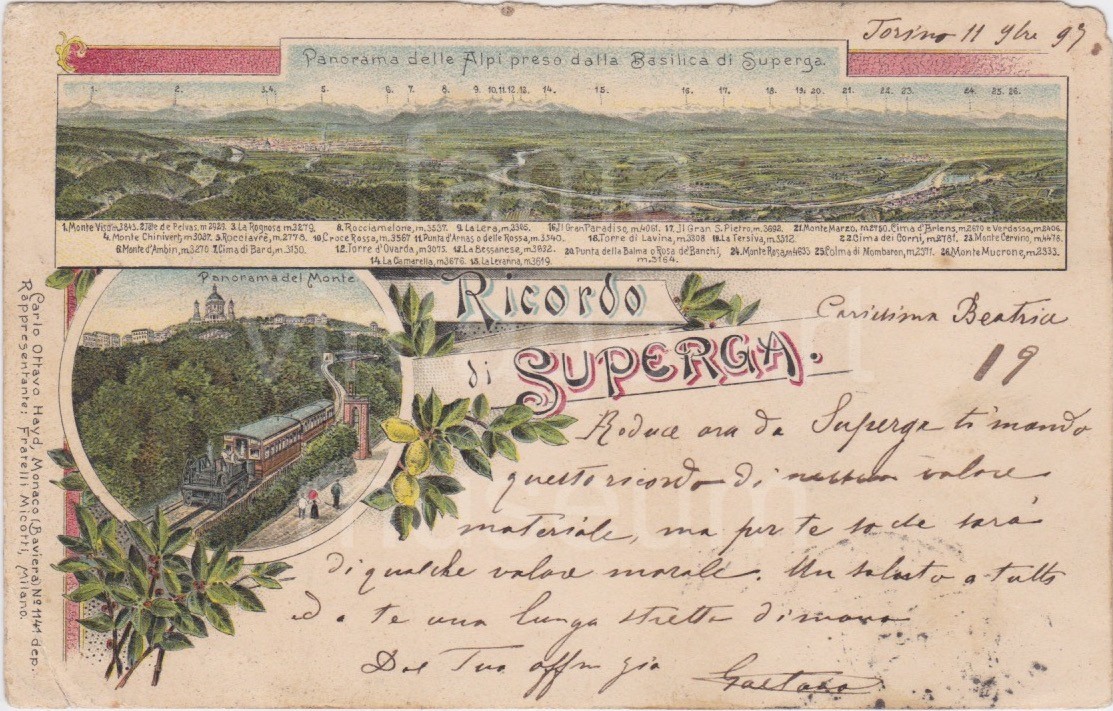 Torino 11 9bre 97
Panorama delle Alpi preso dalla Basilica di Superga.
1. 2. 3.4. 5. 6. 7. 8. 9. 10.11.12.13. 14. 15. 16. 17. 18. 19. 20. 21. 22. 23. 24. 25. 26.
1. Monte Viso m.3843. 2. Tête de Pelvas, m 2929. 3. La Rognosa m 3279. 8. Rocciamelone, m.3537. 9. La Lera, m.3365. 16. Il Gran Paradiso, m.4061. 17. Il Gran S. Pietro, m.3692. 21. Monte Marzo, m.2750. Cima d'Brlens, m.2670 e Verdassa, m.2406.
4. Monte Chinivert, m 3037. 5. Rocciavrè, m.2778. 10. Croce Rossa, m.3567 11. Punta d'Arnas o delle Rossa, m.3540. 18. Torre di Lavina, m.3308 19. La Tersiva, m.3512. 22. Cima dei Corni, m.2781. 23. Monte Cervino, m.4478.
6. Monte d'Ambin, m.3270 7. Cima di Bard, m.3150. 12. Torre d'Ovarda, m.3075. 13. La Bessanese, m.3632. 20. Punta della Balma o Rosa de' Banchi, 24. Monte Rosa, m 4635 25. Colma di Mombaron, m.2371. 26. Monte Mucrone, m.2333.
14. La Ciamarella, m.3676. 15. La Levanna, m.3619. m.3164.
Panorama del Monte
Ricordo
di SUPERGA.
Carissima Beatrice
19
Reduce ora da Superga ti mando
questo ricordo di nessun valore
materiale, ma per te so che sarà
di qualche valore morale. Un saluto a tutti
ed a te una lunga stretta di mano
Dal Tuo affm zio
Gaetano
Carlo Ottavo Hayd, Monaco (Baviera) No 1141 dep.
Rappresentante: Fratelli Micotti, Milano.